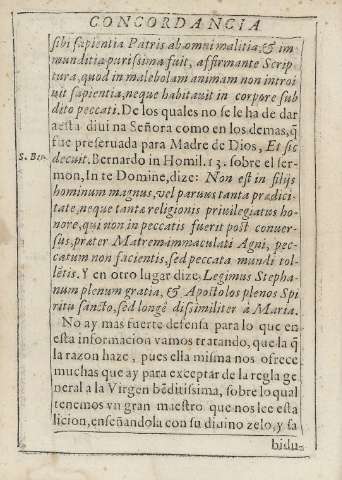 CONCORDANCIA
sibi sapientia Patris ab omni malitia, & im
munditia purissima fuit, affirmante Scrip
tura, quod in malebolam animam non introi
uit sapientia, neque habitauit in corpore sub
dito peccati. De los quales no se le ha de dar
a esta diuina Señora como en los demas, q̃
fue preseruada para Madre de Dios, Et sic
decuit. Bernardo in Homil. 13. sobre el ser-
S. Ber.
mon, In te Domine, dize: Non est in filijs
hominum magnus, vel paruus tanta prædici
tate, neque tanta religionis priuilegiatus ho-
nore, qui non in peccatis fuerit post conuer-
sus, præter Matrem immaculati Agni, pec-
catum non facientis, sed peccata mundi tol-
lētis. Y en otro lugar dize: Legimus Stepha-
num plenum gratia, & Apostolos plenos Spi
ritu sancto, sed longè dissimiliter à Maria.
No ay mas fuerte defensa para lo que en
esta informacion vamos tratando, que la q̃
la razon haze, pues ella misma nos ofrece
muchas que ay para exceptar de la regla ge
neral a la Virgen bēditissima, sobre lo qual
tenemos vn gran maestro que nos lee esta
licion, enseñandola con su diuino zelo, y sa
bidu-